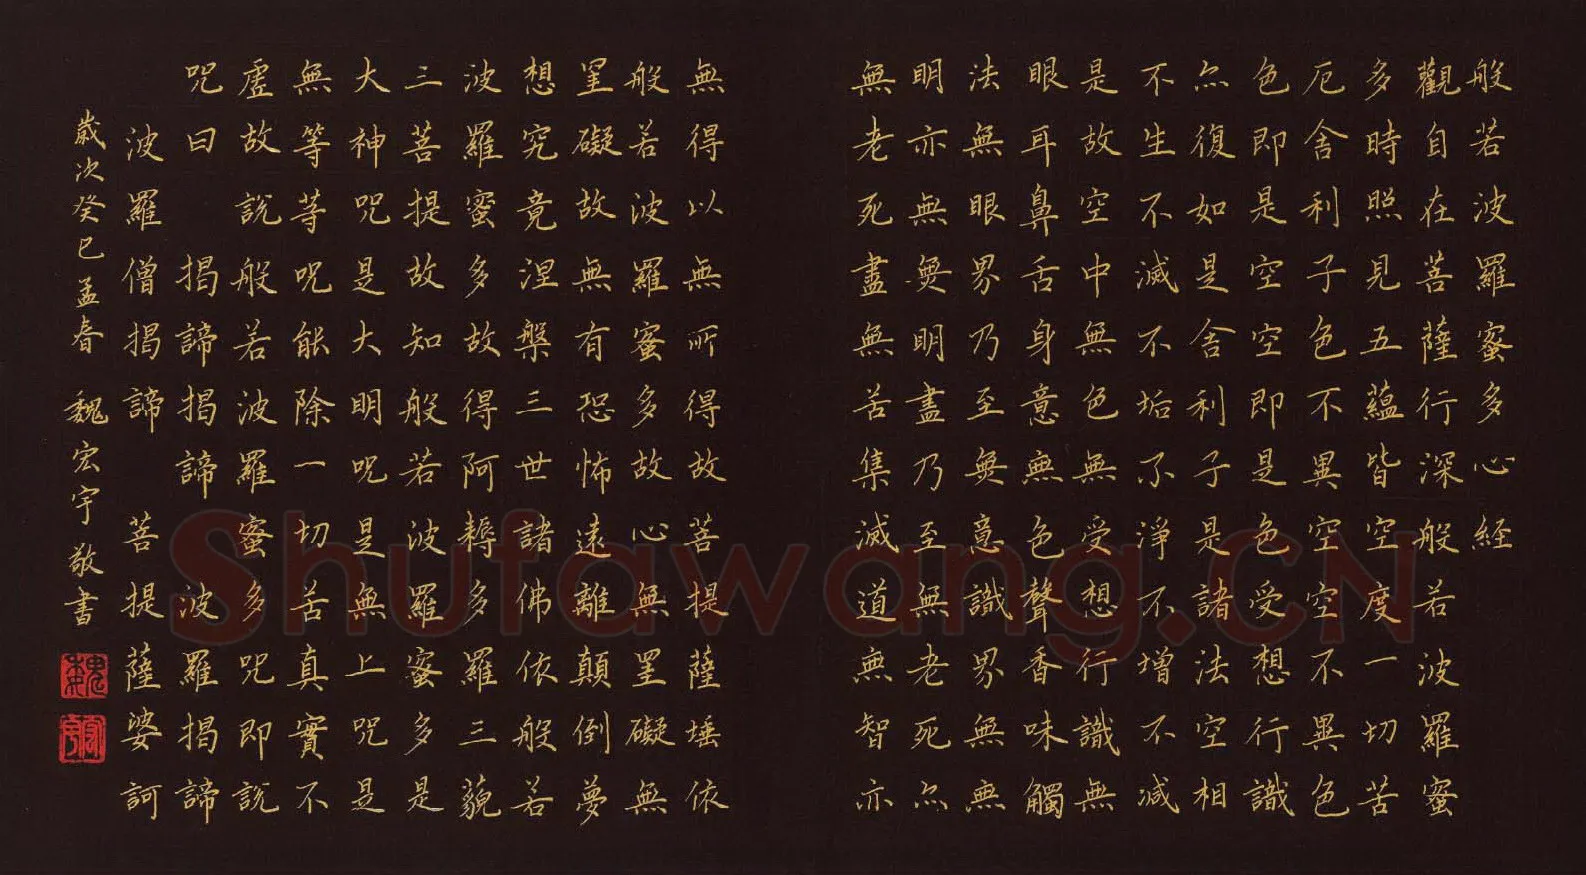 般若波羅蜜多心経
觀自在菩薩行深般若波羅蜜
多時照見五蘊皆空度一切苦
厄舍利子色不異空空不異色
色即是空空即是色受想行識
亦復如是舍利子是諸法空相
不生不滅不垢不淨不增不減
是故空中無色無受想行識無
眼耳鼻舌身意無色聲香味觸
法無眼界乃至無意識界無無
明亦無無明盡乃至無老死亦
無老死盡無苦集滅道無智亦
無得以無所得故菩提薩埵依
般若波羅蜜多故心無罣礙無
罣礙故無有恐怖遠離顛倒夢
想究竟涅槃三世諸佛依般若
波羅蜜多故得阿耨多羅三藐
三菩提故知般若波羅蜜多是
大神咒是大明咒是無上咒是
無等等咒能除一切苦真實不
虛故說般若波羅蜜多咒即說
咒曰 揭諦揭諦 波羅揭諦
波羅僧揭諦 菩提薩婆訶
歲次癸巳孟春 魏宏宇敬書
魏
宏宇
Shufawang.CN